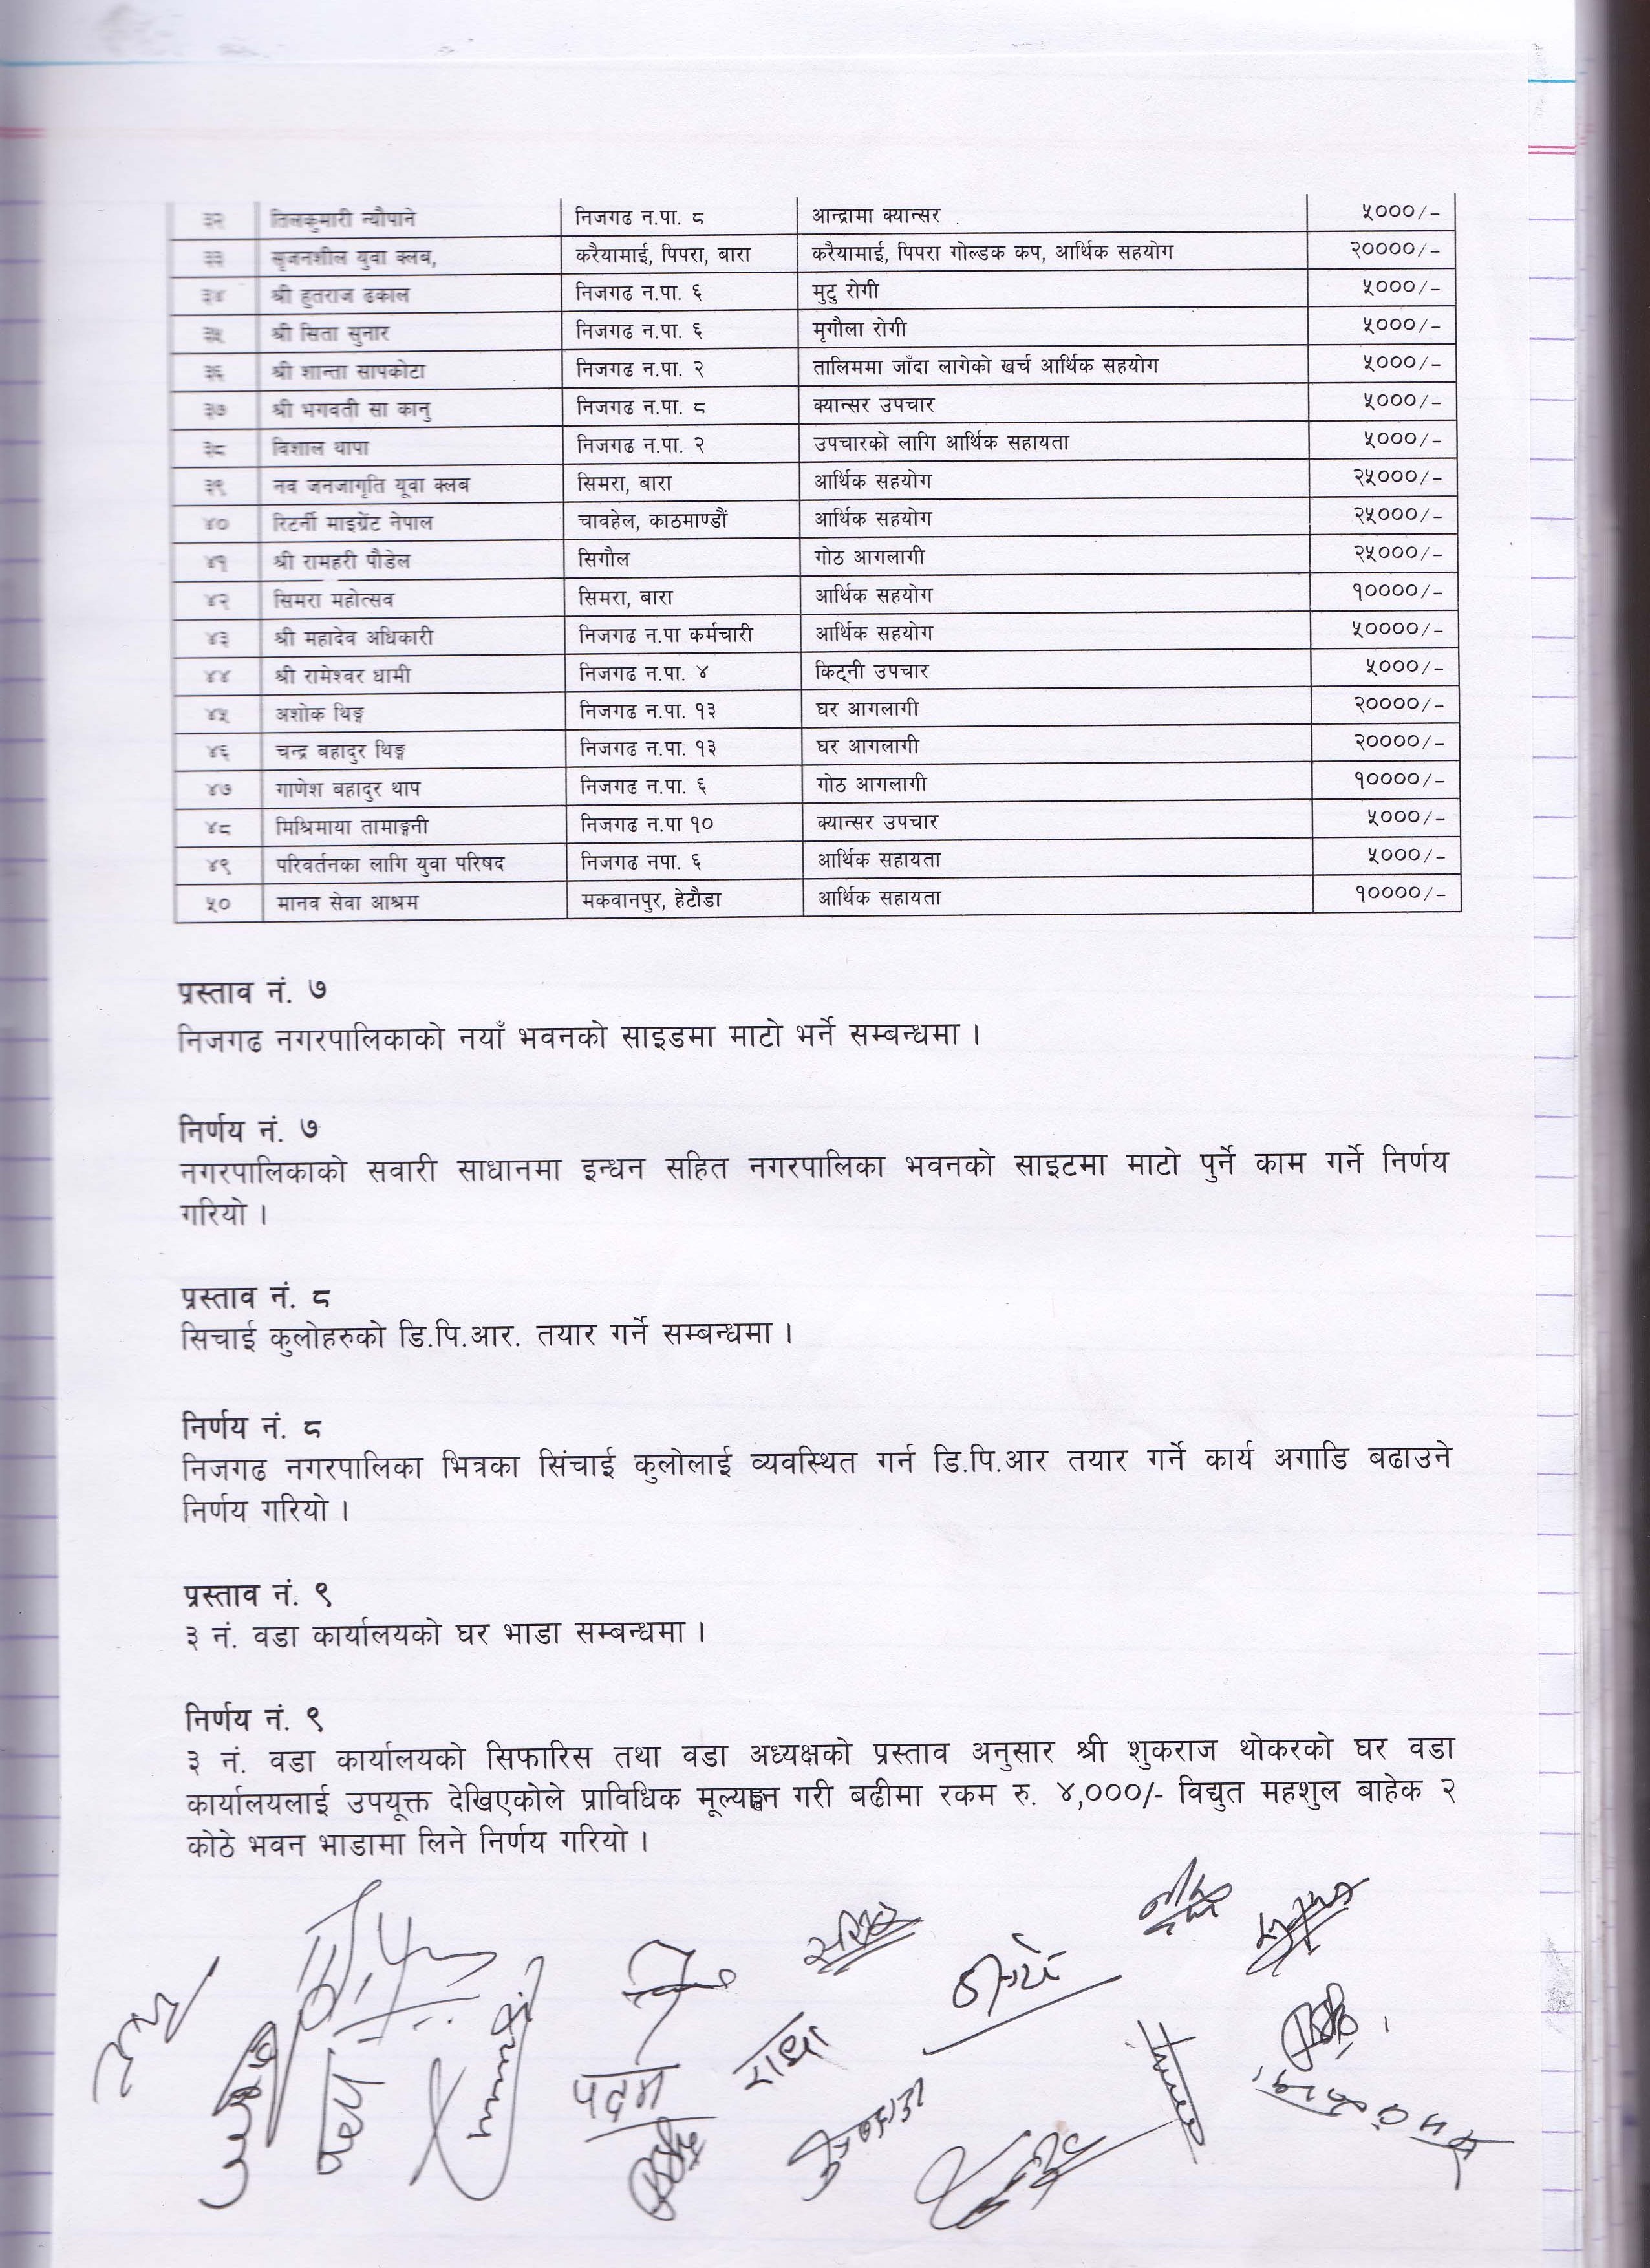 ३२ तिलकुमारी न्यौपाने निजगढ न.पा. ८ आन्द्रामा क्यान्सर ५०००/-
३३ सृजनशील युवा क्लब, करैयामाई, पिपरा, बारा करैयामाई, पिपरा गोल्डक कप, आर्थिक सहयोग २००००/-
३४ श्री हुतराज ढकाल निजगढ न.पा. ६ मुटु रोगी ५०००/-
३५ श्री सिता सुनार निजगढ न.पा. ६ मृगौला रोगी ५०००/-
३६ श्री शान्ता सापकोटा निजगढ न.पा. २ तालिममा जाँदा लागेको खर्च आर्थिक सहयोग ५०००/-
३७ श्री भगवती सा कानु निजगढ न.पा. ८ क्यान्सर उपचार ५०००/-
३८ विशाल थापा निजगढ न.पा. २ उपचारको लागि आर्थिक सहायता ५०००/-
३९ नव जनजागृति यूवा क्लब सिमरा, बारा आर्थिक सहयोग २५०००/-
४० रिटर्नी माइग्रेंट नेपाल चावहेल, काठमाण्डौं आर्थिक सहयोग २५०००/-
४१ श्री रामहरी पौडेल सिगौल गोठ आगलागी २५०००/-
४२ सिमरा महोत्सव सिमरा, बारा आर्थिक सहयोग १००००/-
४३ श्री महादेव अधिकारी निजगढ न.पा कर्मचारी आर्थिक सहयोग ५००००/-
४४ श्री रामेश्वर धामी निजगढ न.पा. ४ किट्नी उपचार ५०००/-
४५ अशोक थिङ्ग निजगढ न.पा. १३ घर आगलागी २००००/-
४६ चन्द्र बहादुर थिङ्ग निजगढ न.पा. १३ घर आगलागी २००००/-
४७ गाणेश बहादुर थाप निजगढ न.पा. ६ गोठ आगलागी १००००/-
४८ मिश्रिमाया तामाङ्गनी निजगढ न.पा १० क्यान्सर उपचार ५०००/-
४९ परिवर्तनका लागि युवा परिषद निजगढ नपा. ६ आर्थिक सहायता ५०००/-
५० मानव सेवा आश्रम मकवानपुर, हेटौडा आर्थिक सहायता १००००/-
प्रस्ताव नं. ७
निजगढ नगरपालिकाको नयाँ भवनको साइडमा माटो भर्ने सम्बन्धमा ।
निर्णय नं. ७
नगरपालिकाको सवारी साधानमा इन्धन सहित नगरपालिका भवनको साइटमा माटो पुर्ने काम गर्ने निर्णय
गरियो ।
प्रस्ताव नं. ८
सिचाई कुलोहरुको डि.पि.आर. तयार गर्ने सम्बन्धमा ।
निर्णय नं. ८
निजगढ नगरपालिका भित्रका सिंचाई कुलोलाई व्यवस्थित गर्न डि.पि.आर तयार गर्ने कार्य अगाडि बढाउने
निर्णय गरियो ।
प्रस्ताव नं. ९
३ नं. वडा कार्यालयको घर भाडा सम्बन्धमा ।
निर्णय नं. ९
३ नं. वडा कार्यालयको सिफारिस तथा वडा अध्यक्षको प्रस्ताव अनुसार श्री शुकराज थोकरको घर वडा
कार्यालयलाई उपयूक्त देखिएकोले प्राविधिक मूल्याङ्कन गरी बढीमा रकम रु. ४,०००/- विद्युत महशुल बाहेक २
कोठे भवन भाडामा लिने निर्णय गरियो ।
राधा
पदम